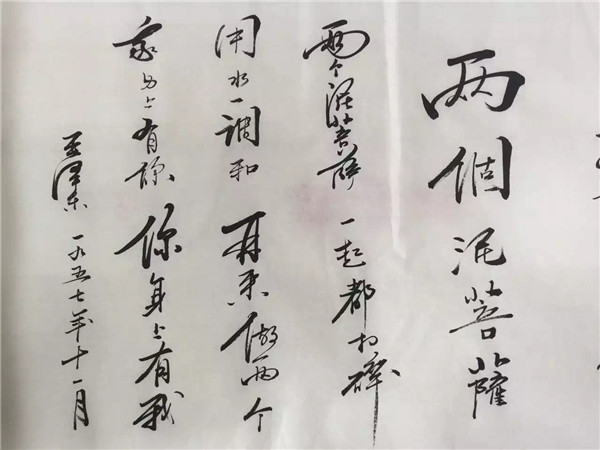 两個泥菩薩
两个泥菩萨 一起都打碎
用水一调和 再来做两个
我身上有你 你身上有我
毛泽东 一九五七年十一月